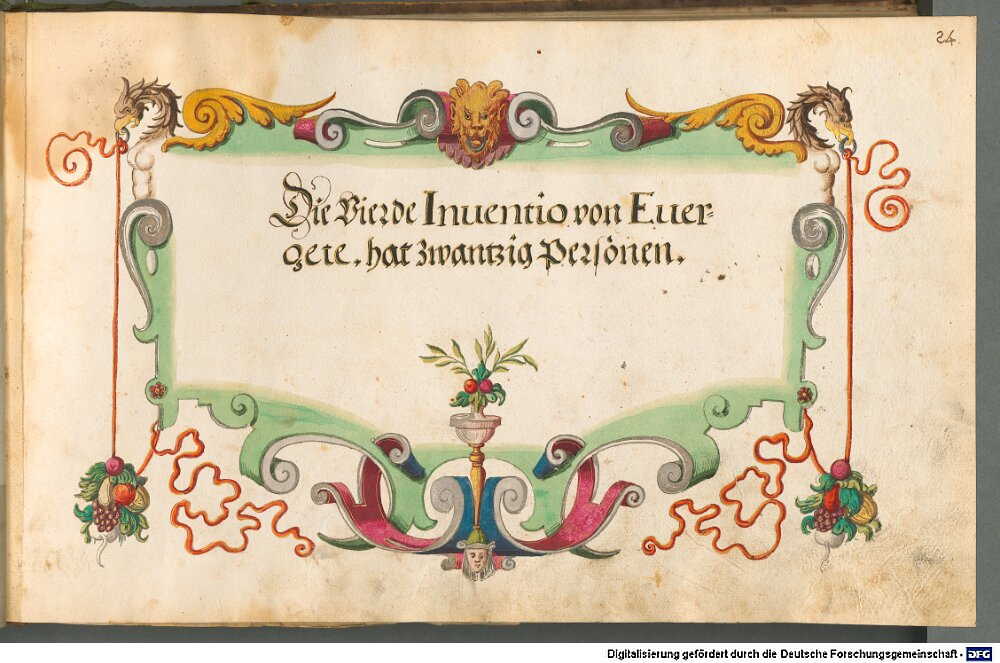 24
Die Vierde Inuentio von Euer=
gete. hat zwantzig Personen.
Digitalisierung gefördert durch die Deutsche Forschungsgemeinschaft - DFG